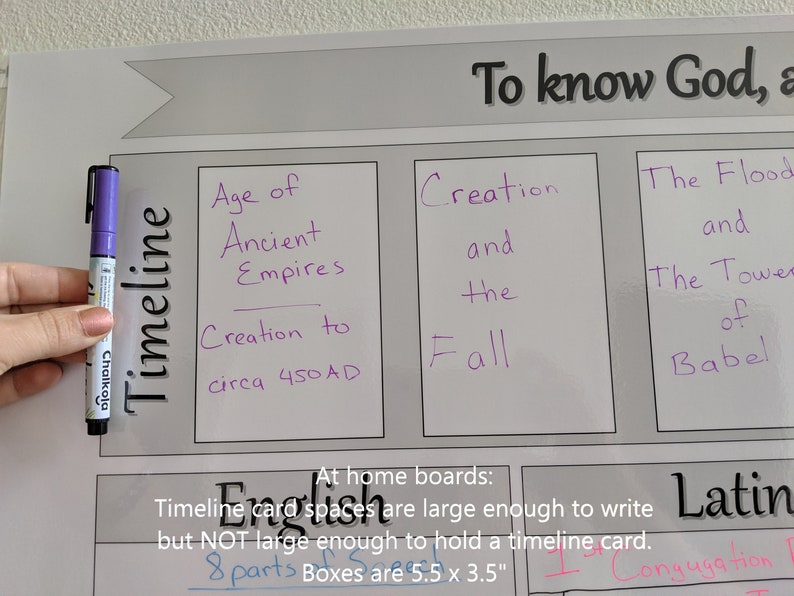 To know God, a
Timeline
Age of
Ancient
Empires
Creation to
circa 450AD
Creation
and
the
Fall
The Flood
and
The Tower
of
Babel
Chalkola
English
8 parts of Speech
Latin
1st Congugation
At home boards:
Timeline card spaces are large enough to write
but NOT large enough to hold a timeline card.
Boxes are 5.5 x 3.5"